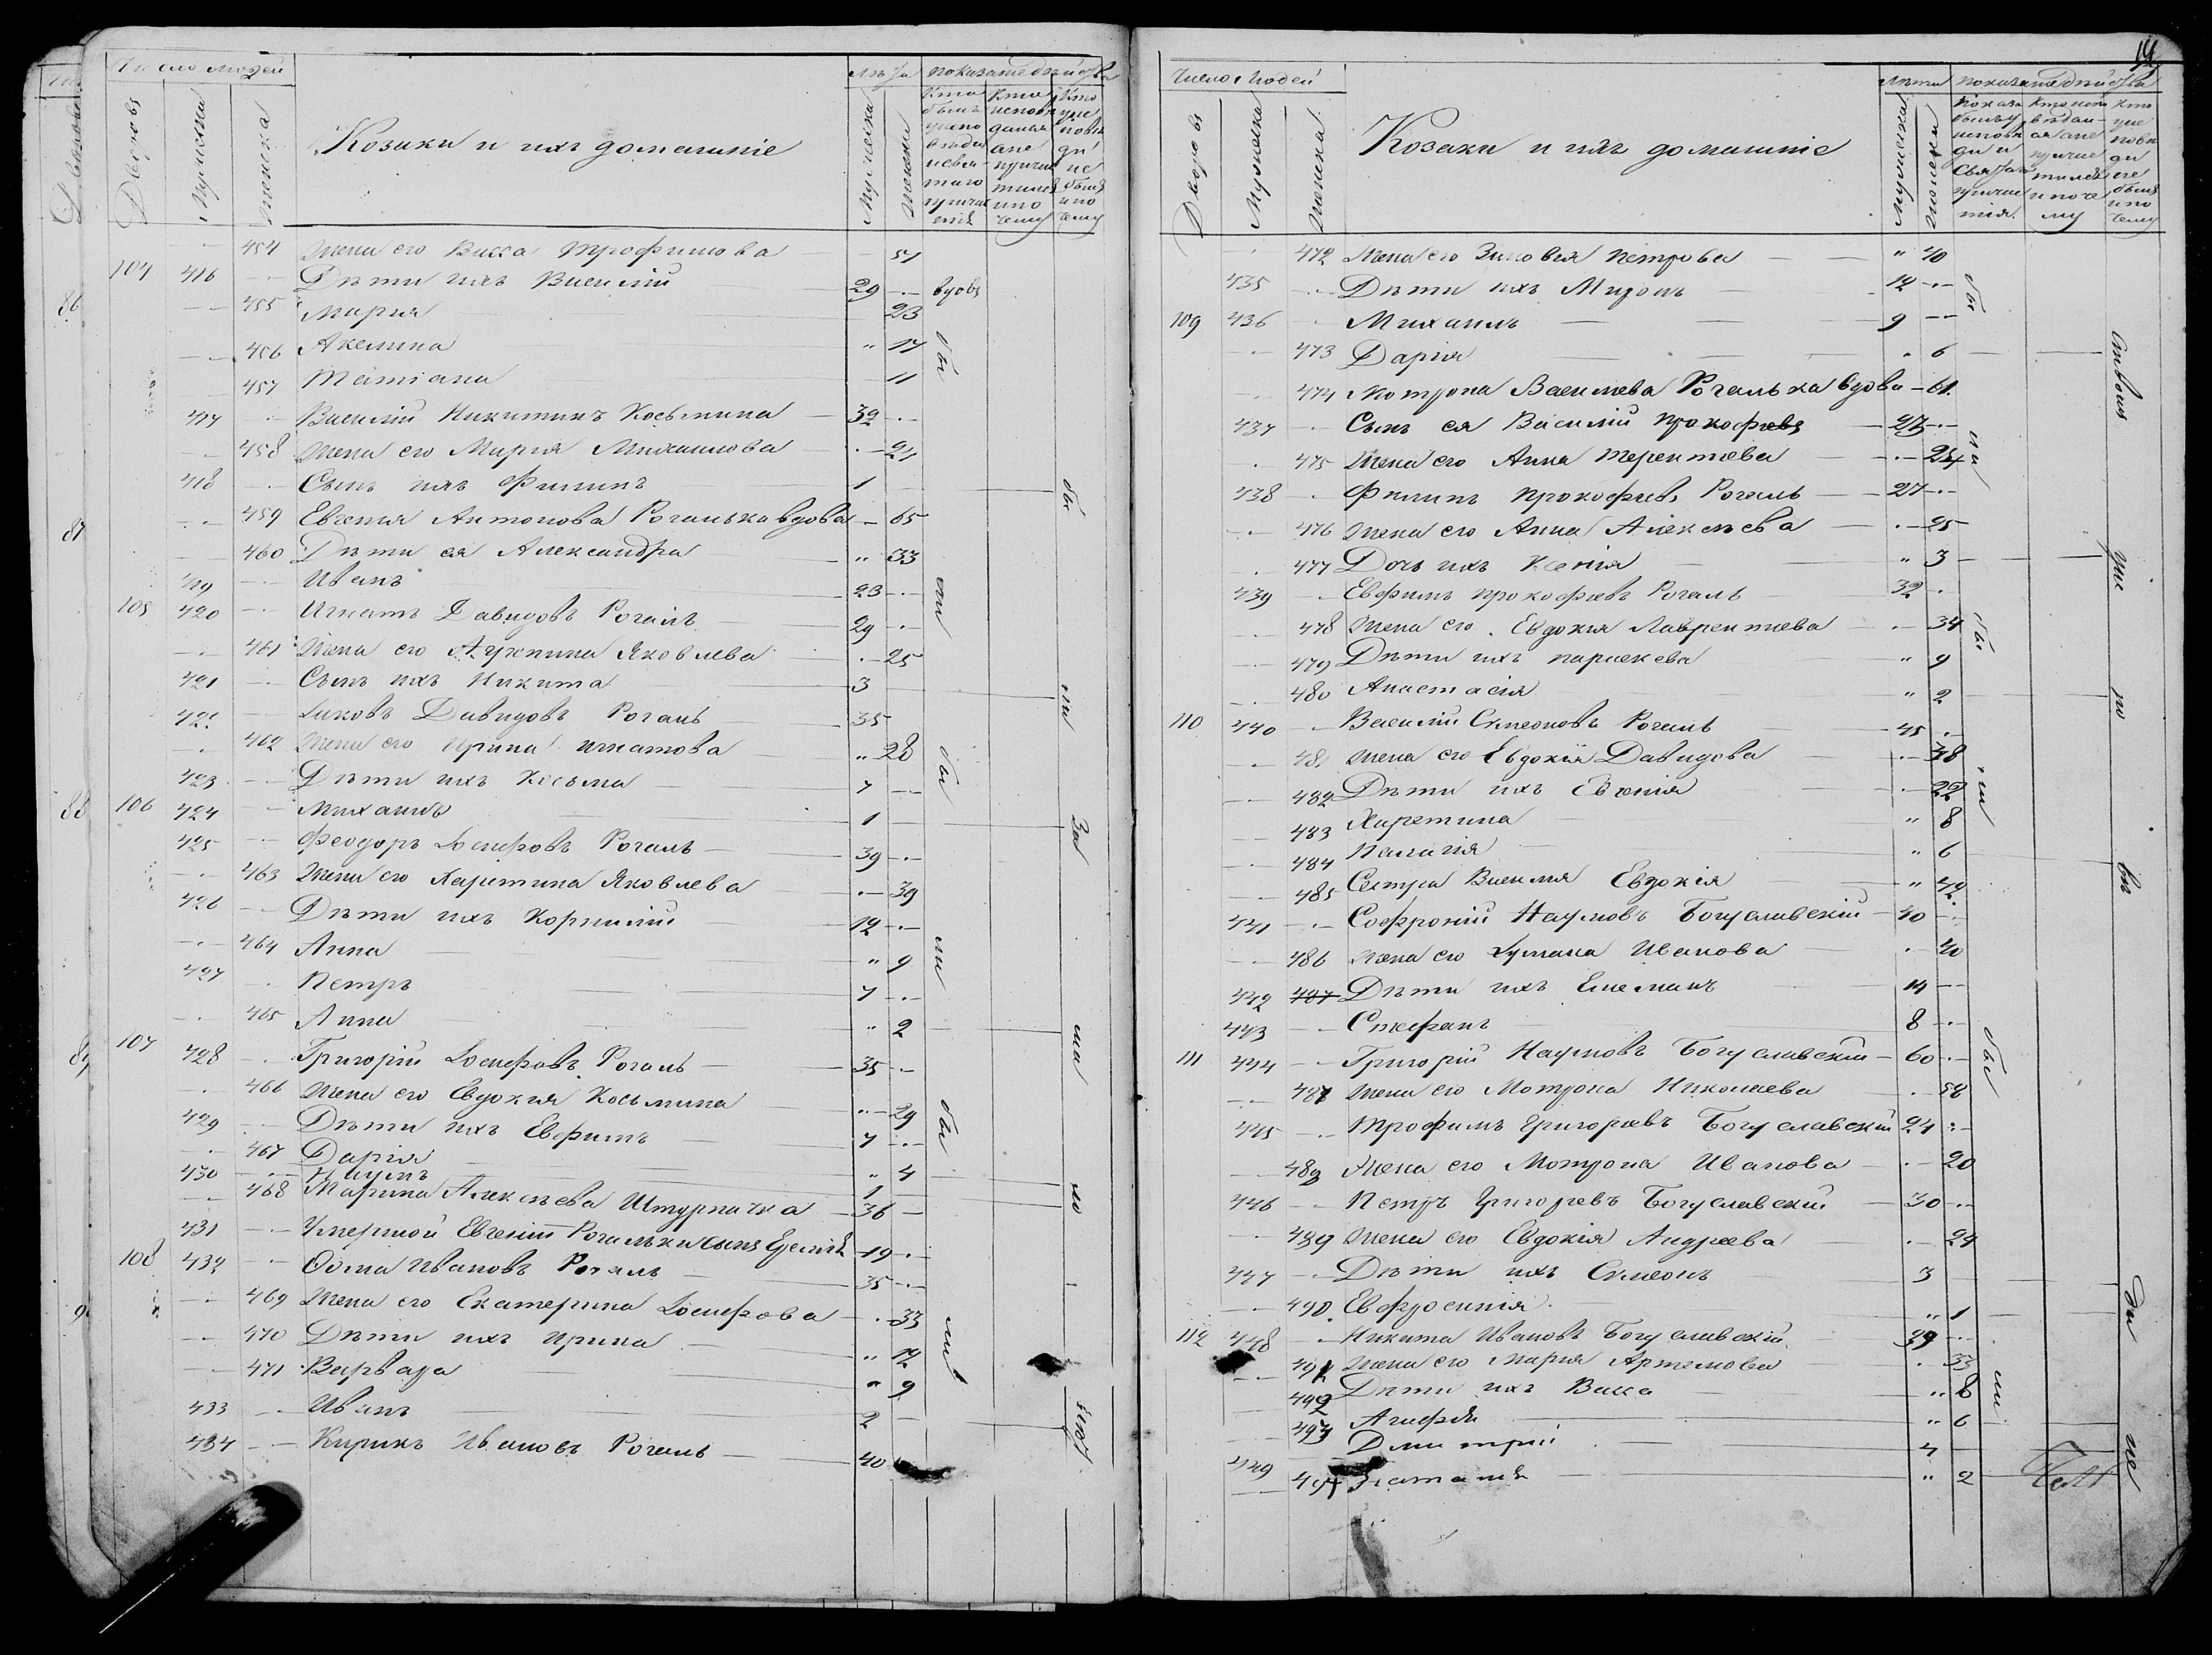 Число людей
Дворовъ
Мужеска
женска
Козаки и ихъ домашніе
Лѣта
Мужеска
женска
показаніе дѣйства
454 жена его Васса Трофимова 51
104 416 Дѣти ихъ Василій 29 вдовъ
455 Мария 23
456 Акелина 17
457 Татіана 11
417 Василій Никитинъ Косьмина 32
458 жена его Мария Михаилова 21
418 Сынъ ихъ Филипъ 1
459 Евгенія Антонова Рогалька вдова 65
460 Дѣти ея Александра 33
419 Иванъ 23
105 420 Игнатъ Давидовъ Рогаль 29
461 жена его Агрипина Яковлева 25
421 Сынъ ихъ Никита 3
422 Іяковъ Давидовъ Рогаль 35
462 жена его Ирина Игнатова 28
423 Дѣти ихъ Косьма 7
106 424 Михаилъ 1
425 Феодоръ Іосифовъ Рогаль 39
463 жена его Харитина Яковлева 39
426 Дѣти ихъ Корнилій 12
464 Анна 9
427 Петръ 7
465 Анна 2
107 428 Григорій Іосифовъ Рогаль 35
466 жена его Евдокия Косьмина 29
429 Дѣти ихъ Евфимъ 7
467 Дарія 4
430 Наумъ 1
468 Марина Алексѣева 36
431 Умершой Евгеніи Рогальки сынъ 19
108 432 Ѳома Ивановъ Рогаль 35
469 жена его Екатерина Іосифова 33
470 Дѣти ихъ Ирина 12
471 Варвара 9
433 Иванъ 2
434 Кирикъ Ивановъ Рогаль 40
Число людей
Дворовъ
Мужеска
женска
Козаки и ихъ домашніе
Лѣта
Мужеска
женска
показаніе дѣйства
472 жена его Зиновія Петрова 40
435 Дѣти ихъ Миронъ 12
109 436 Михаилъ 9
473 Дарія 6
474 Мотрона Василиева Рогалька вдова 61
437 Сынъ ея Василій Прокофіевъ 23
475 жена его Анна Терентіева 24
438 Филипъ Прокофіевъ Рогаль 27
476 жена его Анна Алексѣева 25
477 Дочь ихъ Ксенія 3
439 Евфимъ Прокофіевъ Рогаль 32
478 жена его Евдокия Лаврентіева 34
479 Дѣти ихъ Параскева 9
480 Анастасія 2
110 440 Василій Симеоновъ Рогаль 45
481 жена его Евдокія Давидова 48
482 Дѣти ихъ Евгенія 22
483 Харитина 8
484 Палагія 6
485 Сестра Василия Евдокія 42
441 Софроній Наумовъ Богуславскій 40
486 жена его Іуліана Иванова 40
442 487 Дѣти ихъ 14
443 Стефанъ 8
111 444 Григорій Наумовъ Богуславскій 60
487 жена его Мотрона Николаева 52
445 Трофимъ Григоріевъ Богуславскій 24
488 жена его Мотрона Иванова 20
446 Петръ Григоревъ Богуславскій 30
489 жена его Евдокія Андреева 24
447 Дѣти ихъ Симеонъ 3
490 Евфросинія 1
112 448 Никита Ивановъ Богуславскій 39
491 жена его Мария Артемова 33
492 Дѣти ихъ Васса 8
493 Агафія 6
449 Дмитрій 4
494 Наталія 2